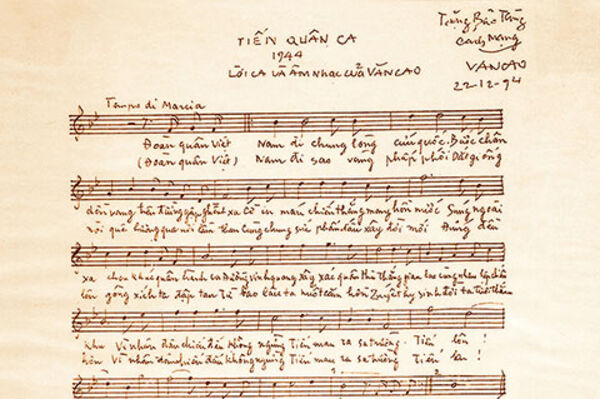 TIẾN QUÂN CA
1944
LỜI CA VÀ ÂM NHẠC CỦA VĂN CAO
Tặng Bảo Tàng
Cách Mạng
VĂN CAO
22-12-94
Tempo di Marcia
Đoàn quân Việt Nam đi chung lòng cứu quốc. Bước chân
(Đoàn quân Việt) Nam đi sao vàng phấp phới Dắt giống
dồn vang trên đường gập ghềnh xa Cờ in máu chiến thắng mang hồn nước Súng ngoài
nòi quê hương qua nơi lầm than Cùng chung sức phấn đấu xây đời mới Đứng đều
xa chen khúc quân hành ca Đường vinh quang xây xác quân thù Thắng gian lao cùng nhau lập chiến
lên gông xích ta đập tan Từ bao lâu ta nuốt căm hờn Quyết hy sinh đời ta tươi thắm
khu Vì nhân dân chiến đấu không ngừng Tiến mau ra sa trường. Tiến lên!
hơn Vì nhân dân chiến đấu không ngừng Tiến mau ra sa trường Tiến lên!